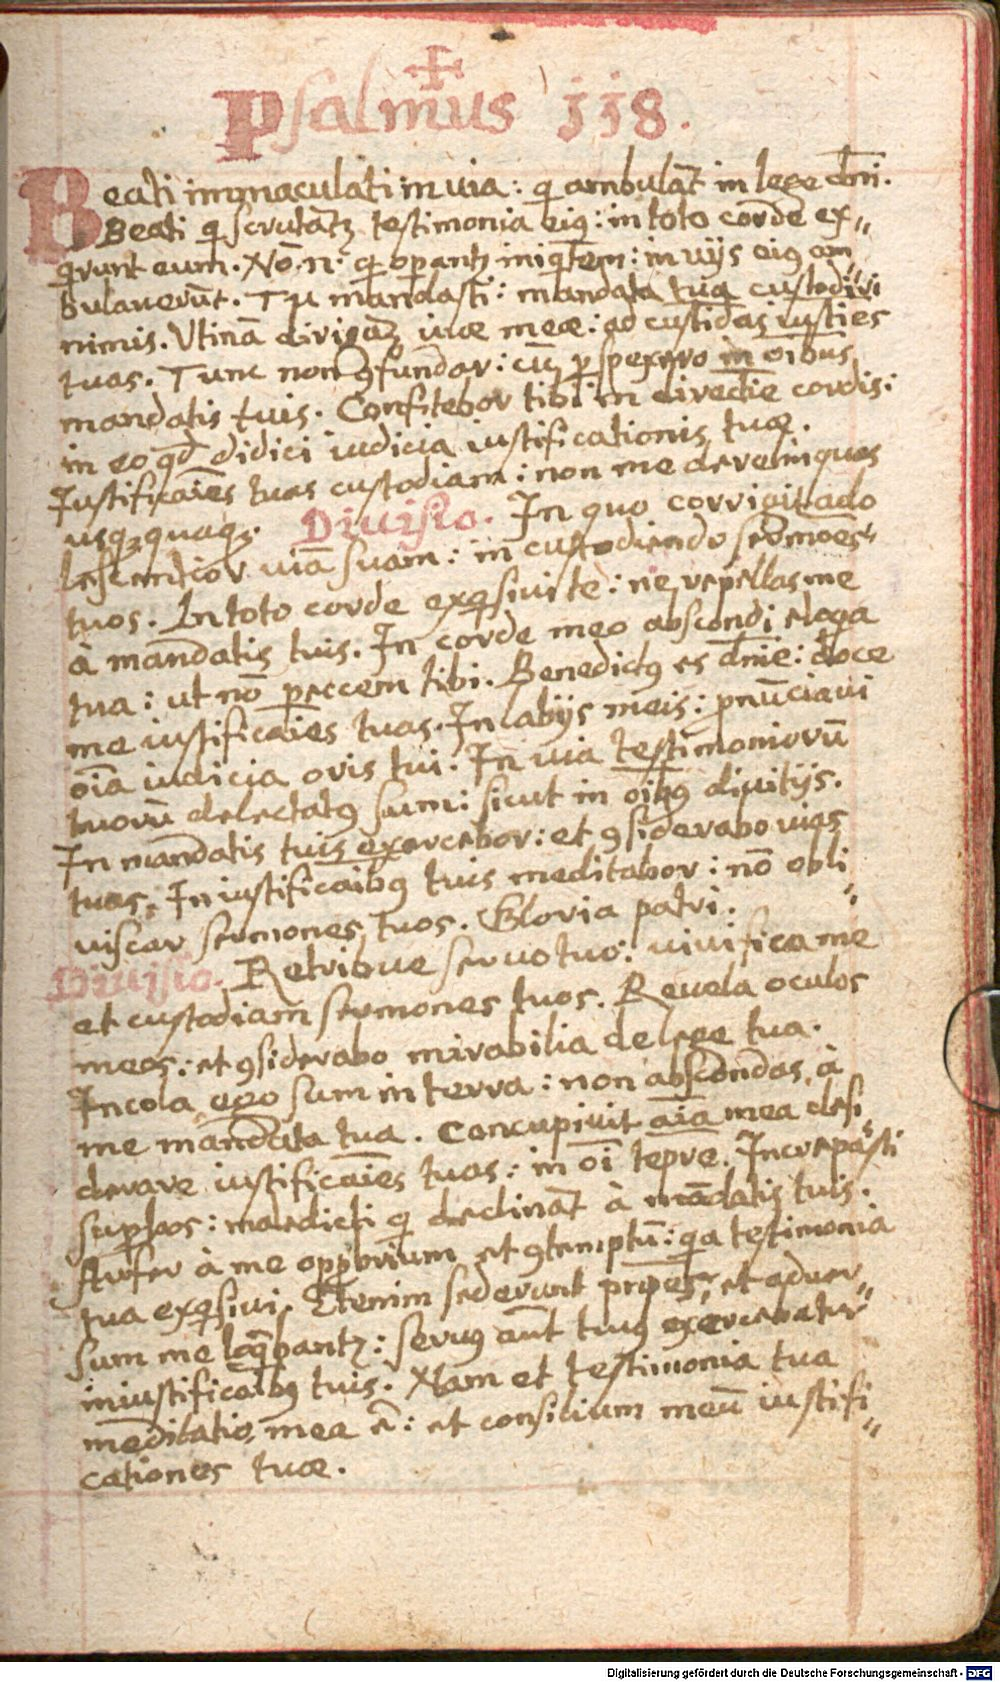 +
Psalmus 118.
Beati immaculati in uia: q̃ ambulāt in lege dn̄i.
Beati q̃ scrutātꝫ testimonia eiꝰ: in toto corde ex„
q̃runt eum. Nō .n. q̃ oꝑantꝫ iniq̃tem: in uijs eiꝰ am„
bulauerūt. Tu mandasti: mandata tua custodiri
nimis. Vtinā dirigātꝫ uiæ meæ: ad custodiēdas iustiēs
tuas. Tunc non ꝯfundar: cū ꝑspexero in oībus
mandatis tuis. Confitebor tibi in directiōe cordis:
in eo qd̄ didici iudicia iustificationis tuæ.
Iustificaīes tuas custodiam: non me derelinquas
usqꝫquaqꝫ. Diuisio. In quo corrigit ado
lescentior uiā suam: in custodiendo sermoēs
tuos. In toto corde exq̃siui te: ne repellas me
à mandatis tuis. In corde meo abscondi eloqa
tua: ut nō peccem tibi. Benedictꝰ es dn̄e: doce
me iustificaīes tuas. In labijs meis: ꝓnūciaui
oīa iudicia oris tui. In uia testimoniorū
tuorū delectatꝰ sum: sicut in oībꝰ diuitijs.
In mandatis tuis exercebor: et ꝯsiderabo uias
tuas. In iustificaībꝰ tuis meditabor: nō obli„
uiscar sermones tuos. Gloria patri.
Diuisio. Retribue seruo tuo: uiuifica me
et custodiam sermones tuos. Reuela oculos
meos: et ꝯsiderabo mirabilia de lege tua.
Incola ego sum in terra: non abscondas à
me mandata tua. Concupiuit aīa mea desi
derare iustificaīes tuas: in oī tēpre. Increpasti
suꝑbos: maledicti q̃ declināt à mādatis tuis.
Aufer à me opꝓbrium et ꝯtemptū: q̃a testimonia
tua exq̃siui. Etenim sederunt prīpes, et aduer„
sum me loq̃bantꝫ: seruꝰ aūt tuus exercebatur
in iustificaībꝰ tuis. Nam et testimonia tua
meditatio mea ē: et consilium meū iustifi„
cationes tuæ.
Digitalisierung gefördert durch die Deutsche Forschungsgemeinschaft - DFG